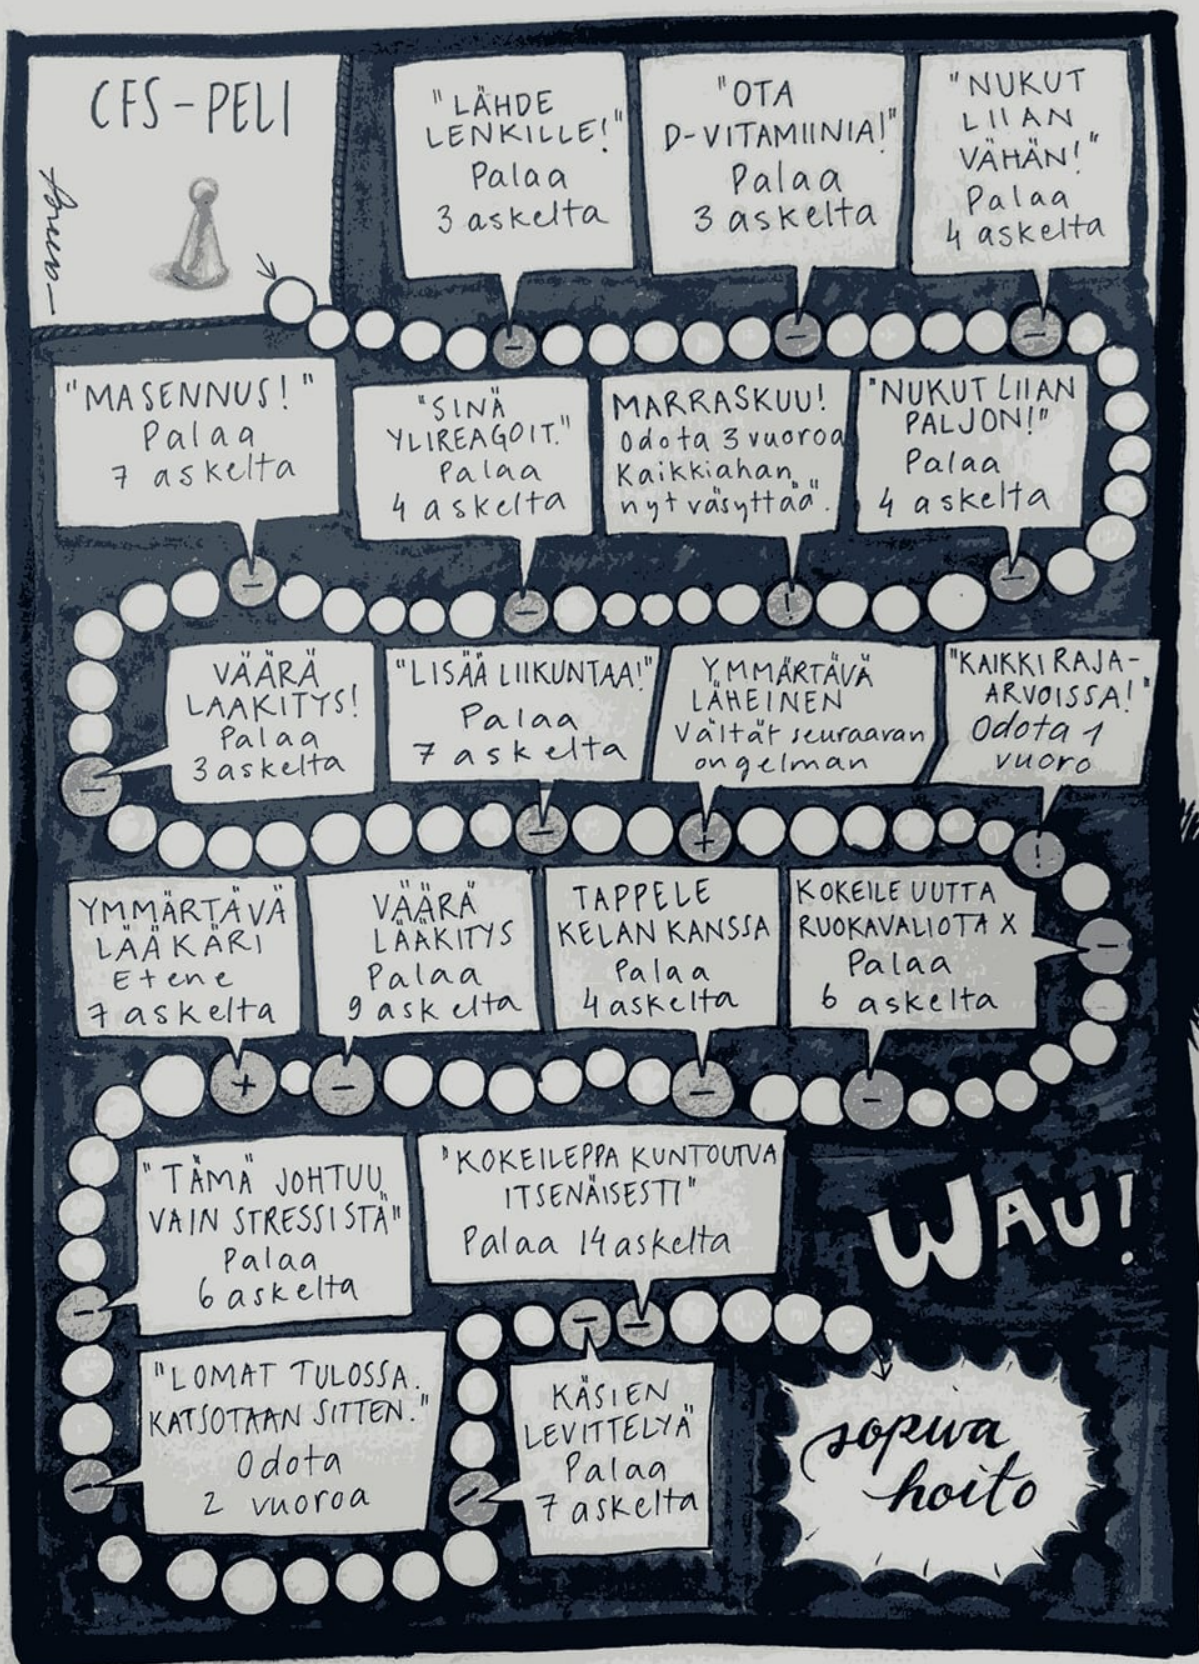 CFS-PELI
"LÄHDE
LENKILLE!"
Palaa
3 askelta
"OTA
D-VITAMIINIA!"
Palaa
3 askelta
"NUKUT
LIIAN
VÄHÄN!"
Palaa
4 askelta
"MASENNUS!"
Palaa
7 askelta
"SINÄ
YLIREAGOIT."
Palaa
4 askelta
MARRASKUU!
Odota 3 vuoroa
"Kaikkiahan
nyt väsyttää".
"NUKUT LIIAN
PALJON!"
Palaa
4 askelta
VÄÄRÄ
LÄÄKITYS!
Palaa
3 askelta
"LISÄÄ LIIKUNTAA!"
Palaa
7 askelta
YMMÄRTÄVÄ
LÄHEINEN
Vältät seuraavan
ongelman
"KAIKKI RAJA-
ARVOISSA!"
Odota 1
vuoro
YMMÄRTÄVÄ
LÄÄKÄRI
Etene
7 askelta
VÄÄRÄ
LÄÄKITYS
Palaa
9 askelta
TAPPELE
KELAN KANSSA
Palaa
4 askelta
KOKEILE UUTTA
RUOKAVALIOTA X
Palaa
6 askelta
"TÄMÄ JOHTUU
VAIN STRESSISTÄ"
Palaa
6 askelta
"KOKEILEPPA KUNTOUTUA
ITSENÄISESTI"
Palaa 14 askelta
WAU!
"LOMAT TULOSSA.
KATSOTAAN SITTEN."
Odota
2 vuoroa
KÄSIEN
LEVITTELYÄ
Palaa
7 askelta
sopiva
hoito